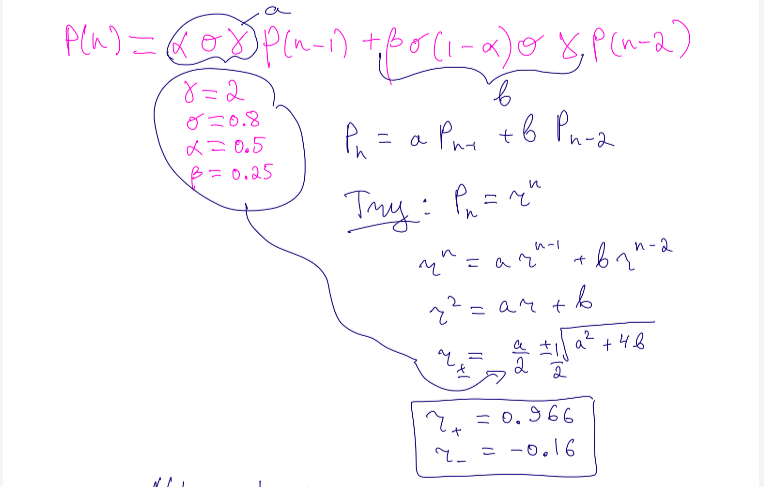 a
P(n) = α σ γ P(n-1) + β σ (1-α) σ γ P(n-2)
b
γ = 2
σ = 0.8
α = 0.5
β = 0.25
Pₙ = a Pₙ₋₁ + b Pₙ₋₂
Try: Pₙ = rⁿ
rⁿ = a rⁿ⁻¹ + b rⁿ⁻²
r² = ar + b
r± = a/2 ± 1/2 √(a² + 4b)
r₊ = 0.966
r₋ = -0.16